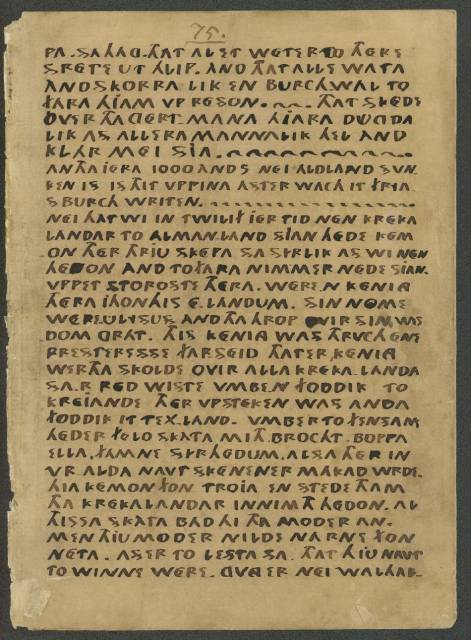 75.
PA. SAHAD. THAT AL ET WETER TO THERE
SRETE UT HLIP. AND THAT ALLE WATA
AND SKORRA LIK EN BURCHWAL TO
FARA HIAM VP RESON. THAT SKEDE
OVER THA GERTMANA HIARA DUGDA
LIK AS ALLERA MANNALIK HEL AND
KLAR MEI SIA.
AN THA IERA 1000 AND 5 NEI ALDLAND SVN.
KEN IS IS THIT VPPINA ASTER WACH IT FRIA.
S BURCH WRITEN.
NEI THAT WI IN TWILIF IER TID NEN KREKA
LANDAR TO ALMANLAND SIAN HEDE KEM
ON THER THRIU SKEPA SA SIRLIK AS WI NEN
HEDON AND TO FARA NIMMER NEDE SIAN.
VPPET STOROSTE THERA. WERE.N KENIG
THERA IHONHIS E.LANDUM. SIN NOME
WERE ULYSUS AND THA HROP OVIR SIN WIS
DOM GRAT. THIS KENIG WAS THRVCH ENE
PRESTERESSE FARSEID THATER KENIG
WERTHA SKOLDE OVIR ALLA KREKA.LANDA
SA.R RED WISTE VMBEN FODDIK TO
KREIANDE THER VPSTEKEN WAS ANDA
FODDIK IT TEX.LAND. VMBER TO FENSAM
HEDER FELO SKATA MITH.BROCHT. BOPPA
ELLA. FAMNE SIRHEDUM. ALSA THER IN
WR.ALDA NAVT SKENENER MAKAD WRDE.
HIA KEMON FON TROIA EN STEDE THAM
THA KREKALANDAR INNIMTH HEDON. AL
THISSA SKATA BAD HI THA MODER AN.
MEN THIU MODER NILDE NARNE FON
NETA. ASER TO LESTA SA. THAT HIU NAVT
TO WINNE WERE. GVNG ER NEI WALHAL.